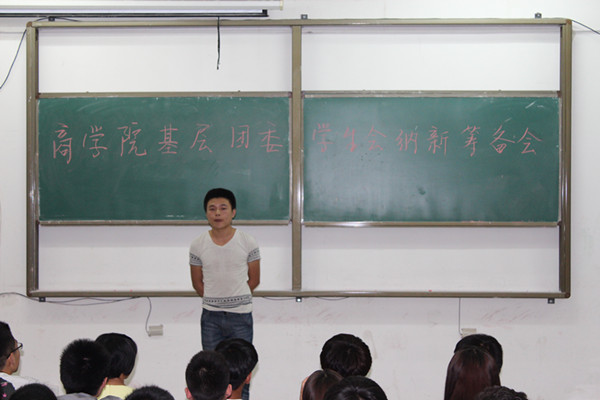 商学院基层团委 学生会纳新筹备会